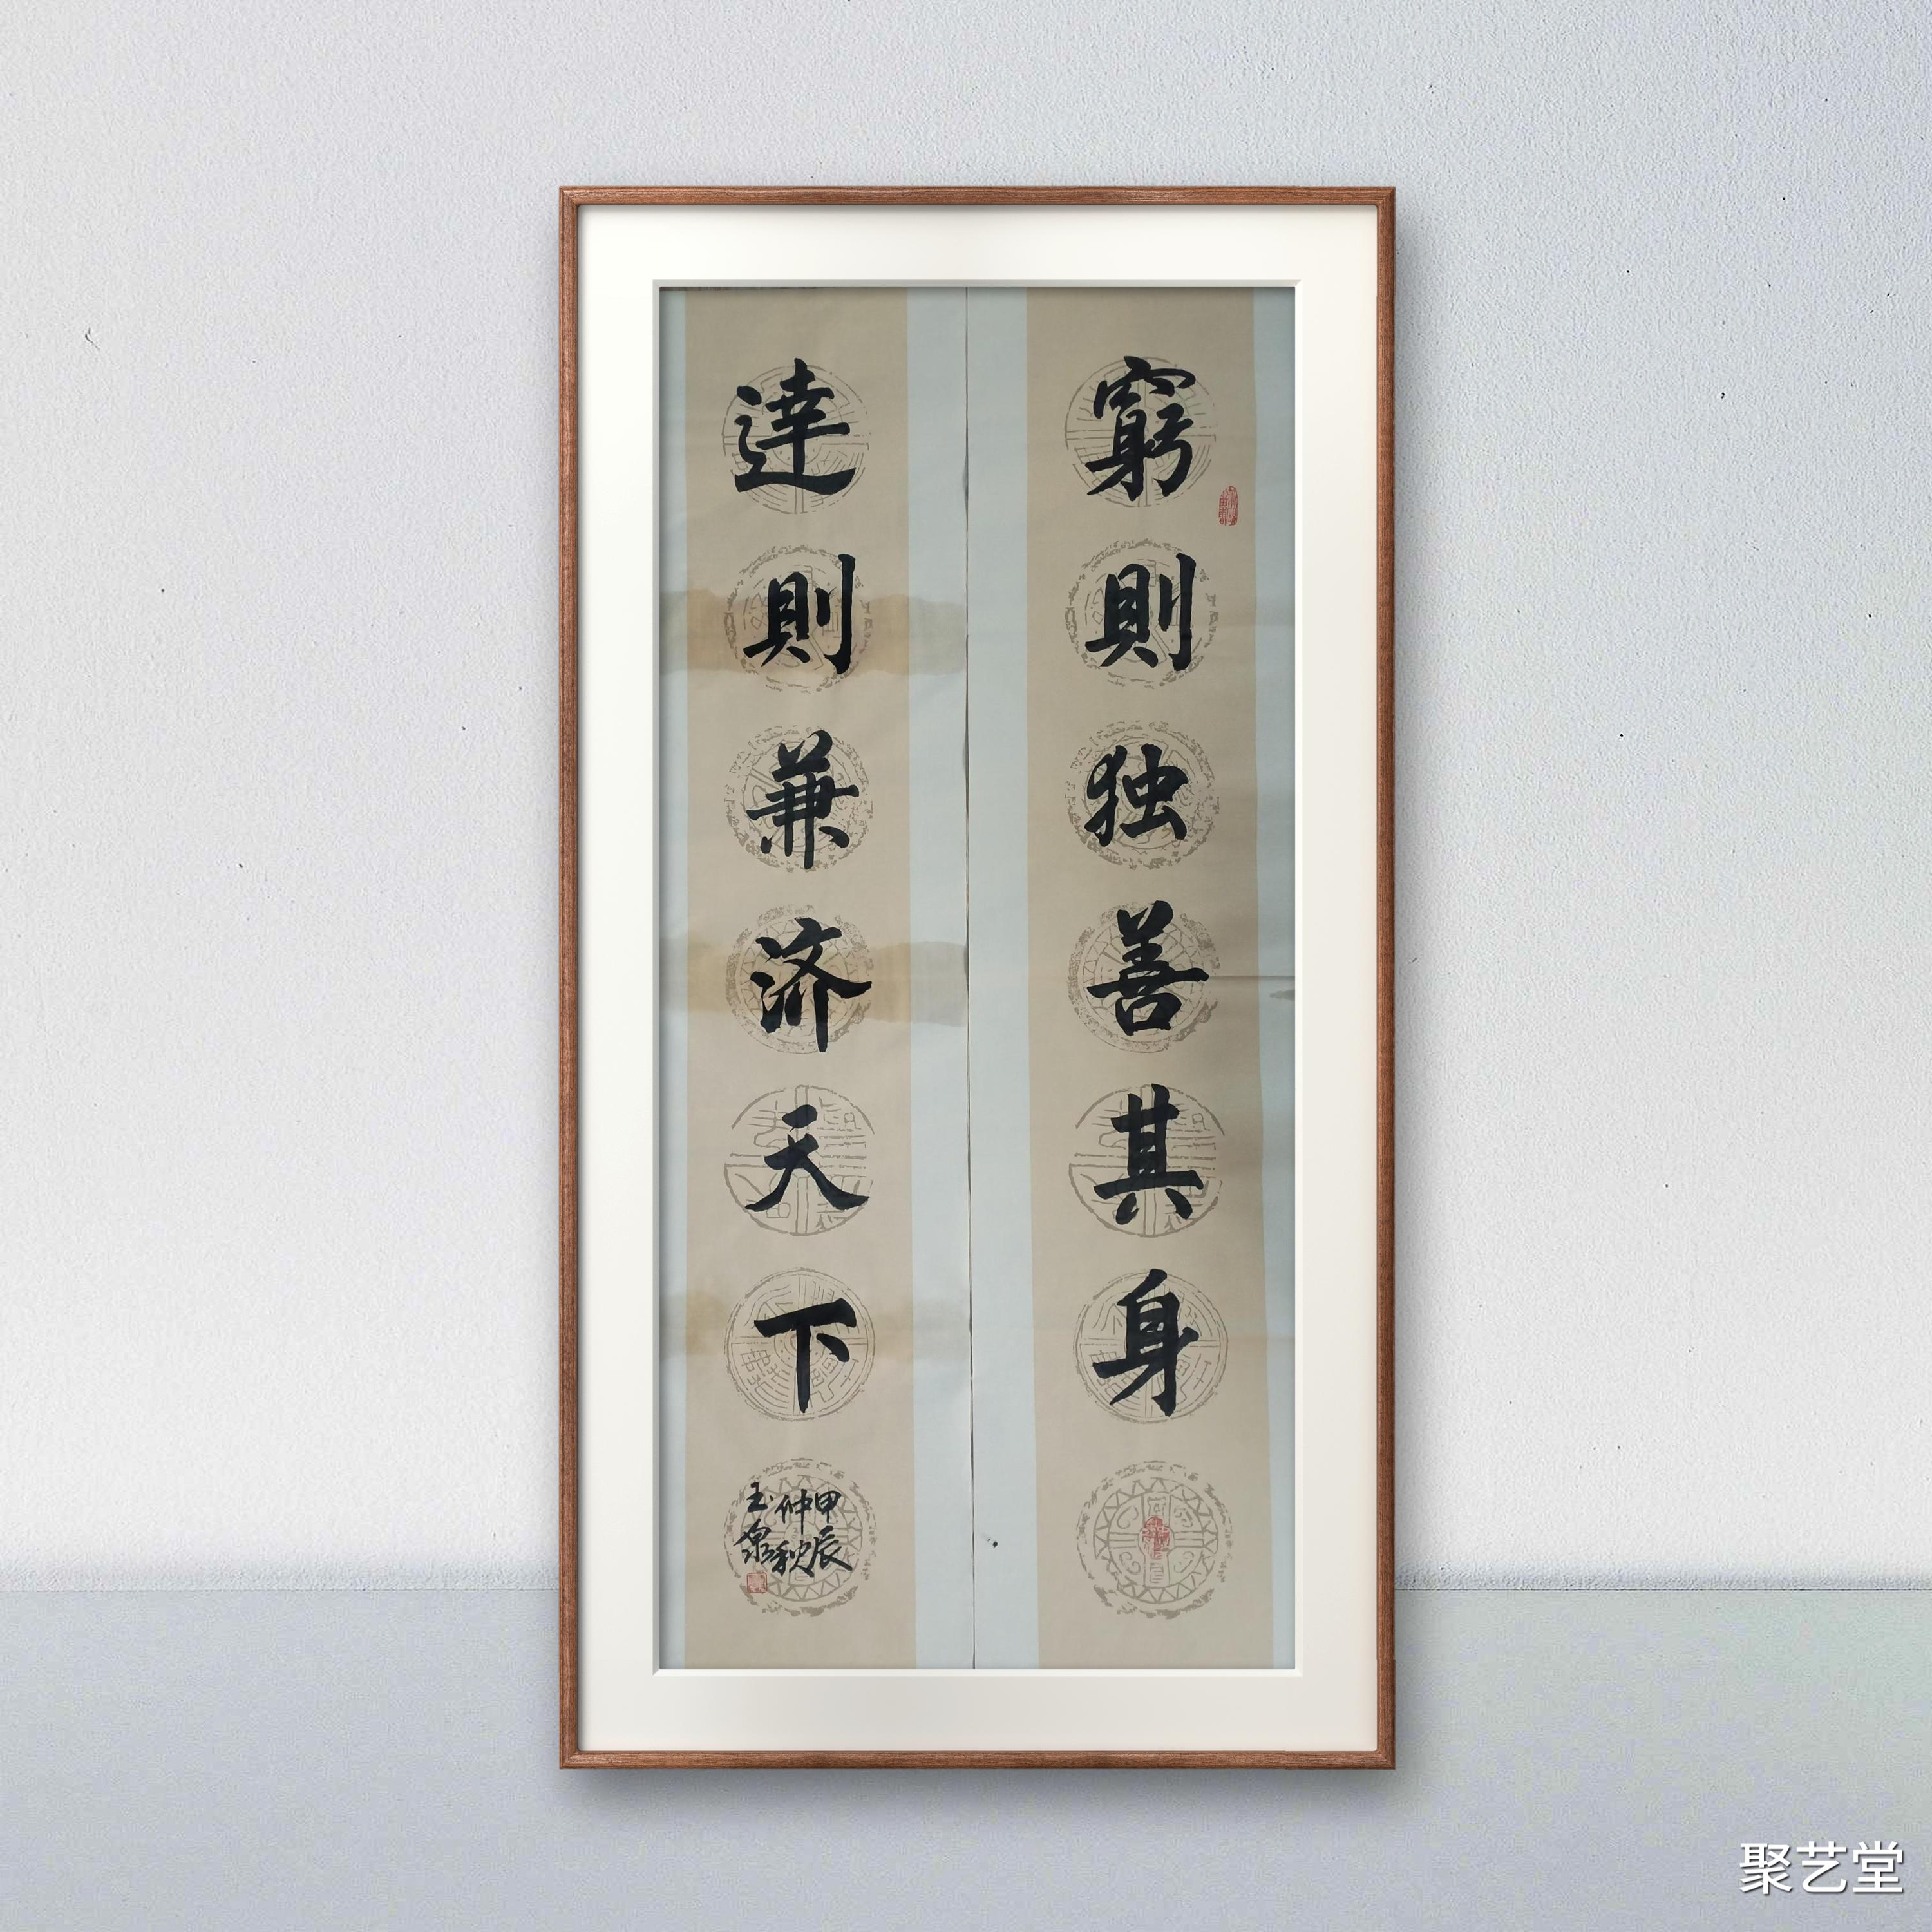 窮則独善其身
達則兼济天下
甲辰
仲秋
玉泉
聚艺堂